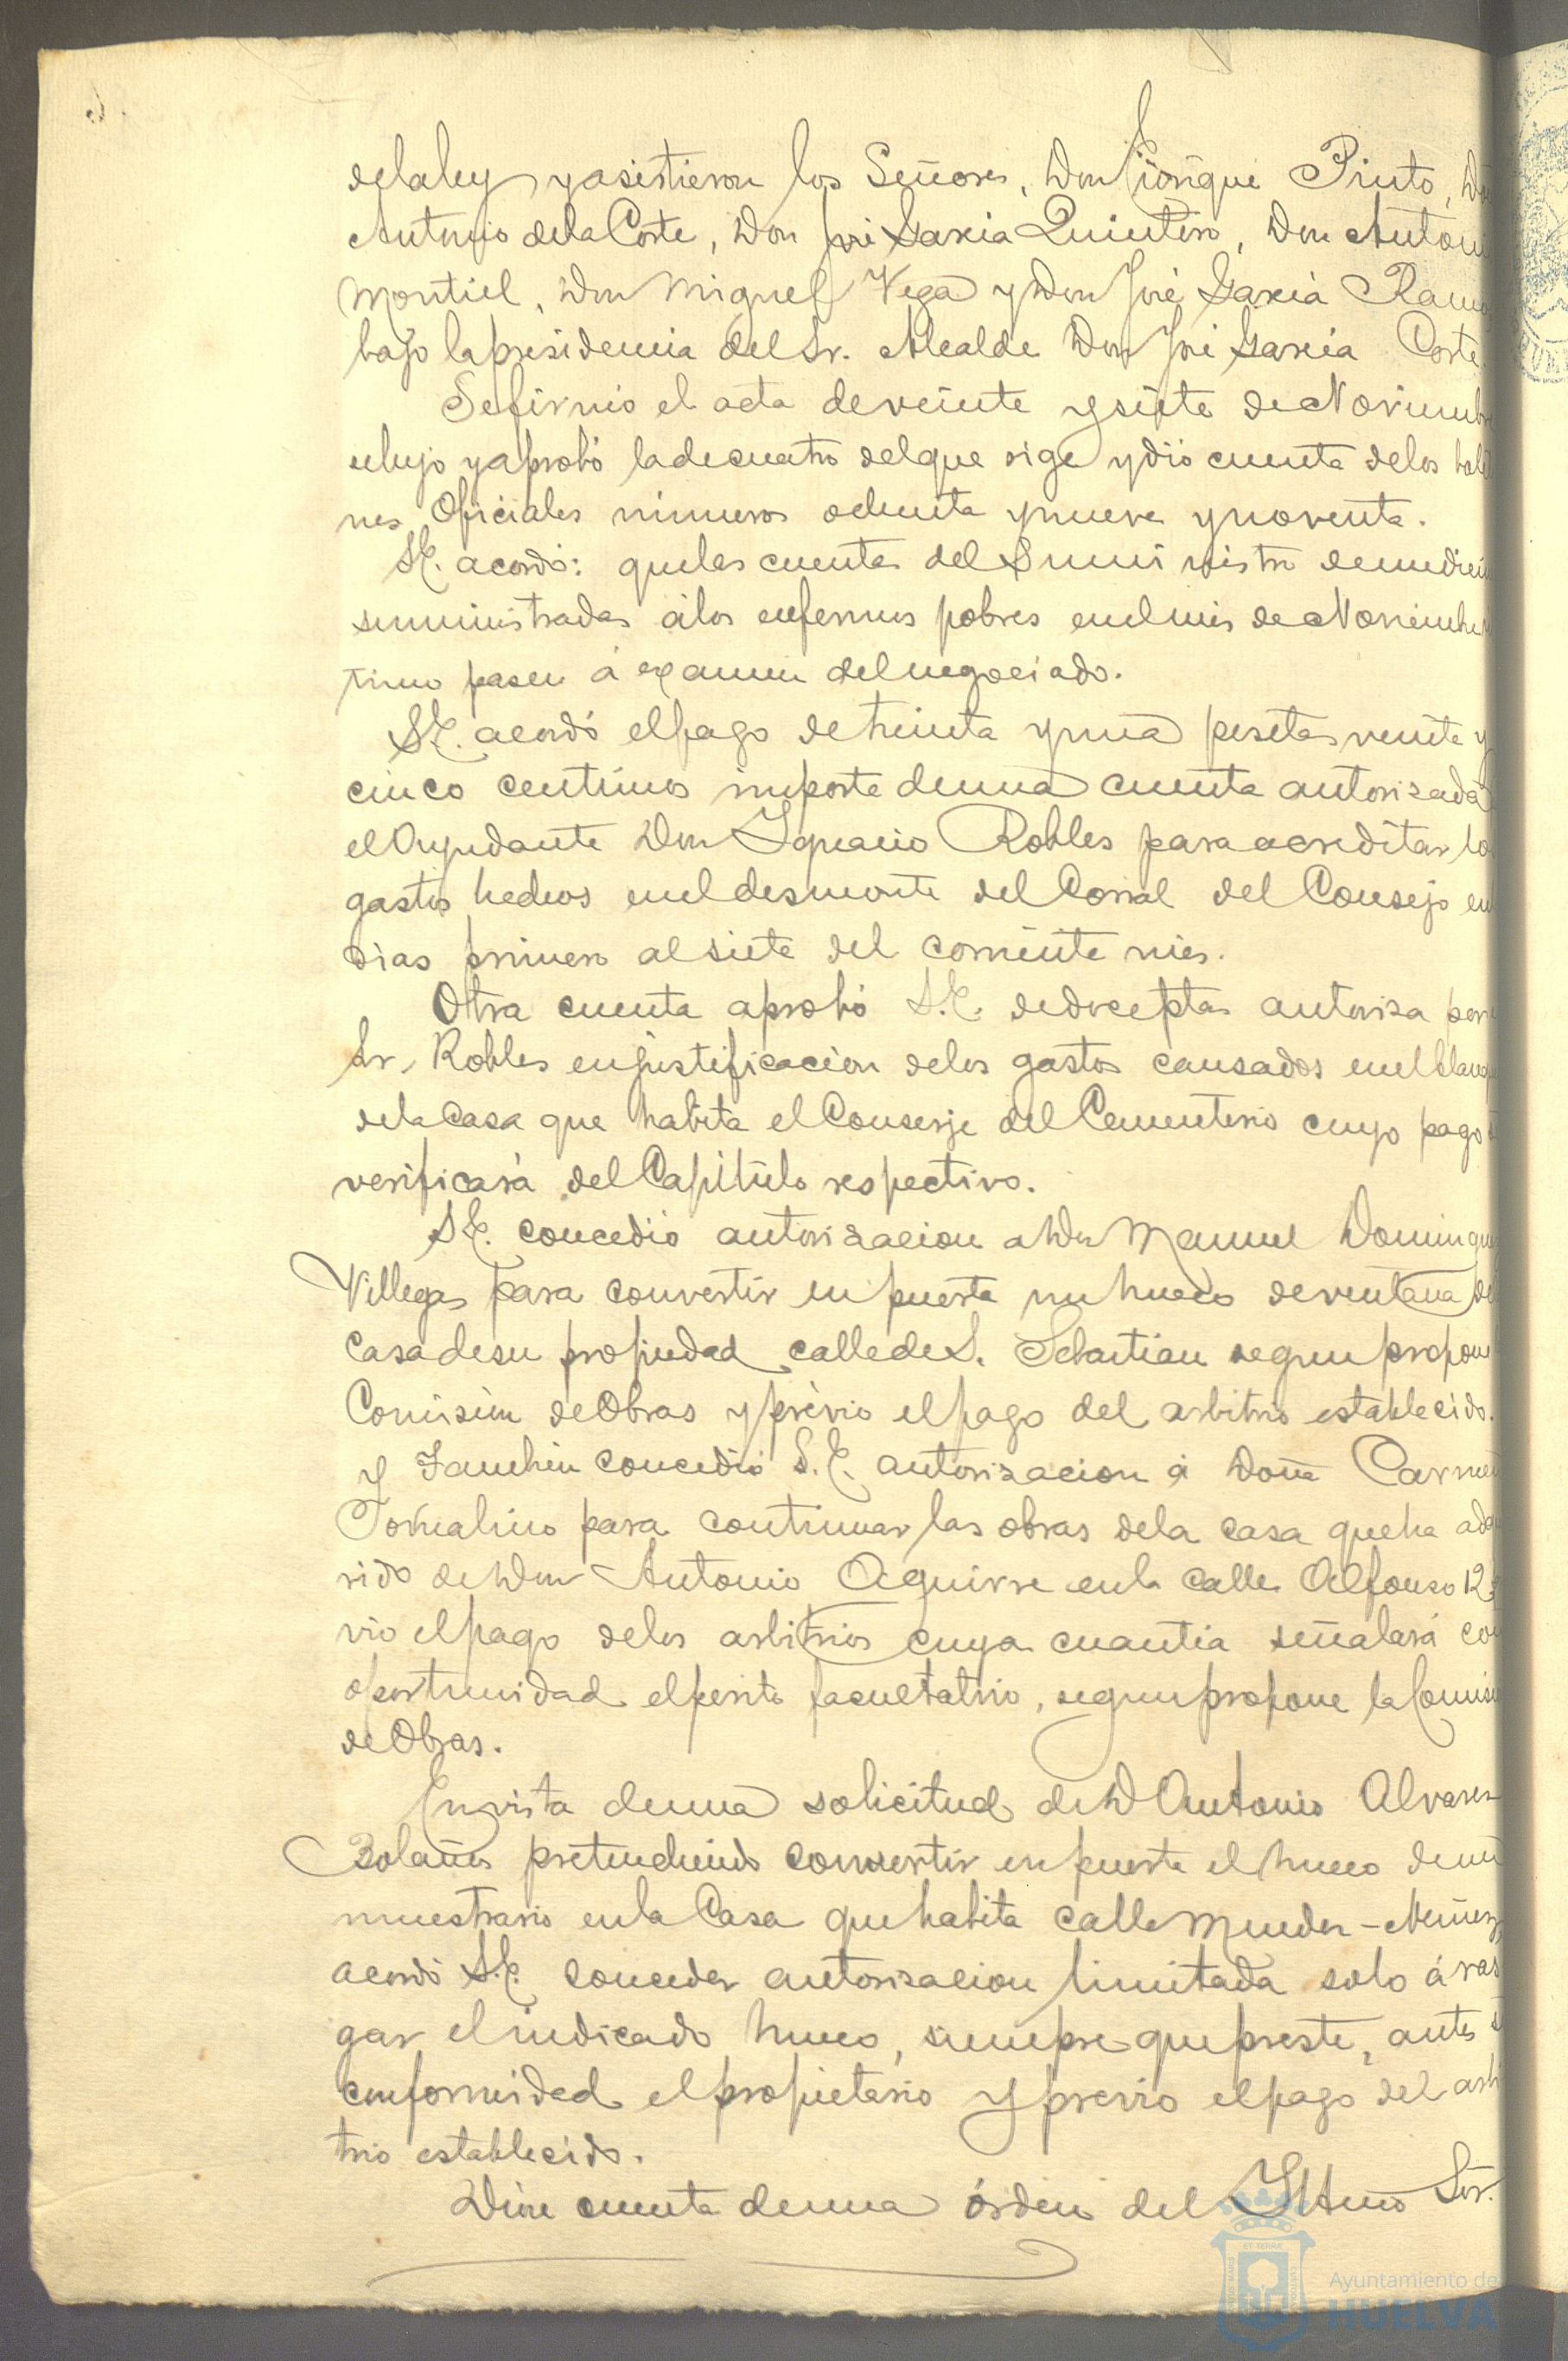 de la ley y asistieron los Señores, Don Enrique Pinto, Dn
Antonio de la Corte, Don José Garcia Quintero, Don Antoni
Montiel, Don Miguel Vega y Don José Garcia Ramo
bajo la presidencia del Sr. Alcalde Don José Garcia Corte.
Se firmó el acta de veinte y siete de Noviembre
se aprobó la de cuatro del que rige y dió cuenta de los bole
nes Oficiales números ochenta y nueve y noventa.
S.E. acordó: que las cuentas del Suministro de medicin
suministradas á los enfermos pobres en el mes de Noviembre
timo pasen á examen del negociado.
S.E. acordó el pago de treinta y una pesetas veinte y
cinco centimos importe de una cuenta autorizada
el Ayudante Don Ignacio Robles para acreditar lo
gastos hechos en el desmonte del Corral del Consejo en
dias primero al siete del corriente mes.
Otra cuenta aprobó S.E. de doce ptas autoriza por
Sr. Robles en justificacion de los gastos causados en el blanq
de la Casa que habita el Conserje del Cementerio cuyo pago s
verificará del Capítulo respectivo.
S.E. concedió autorizacion a Don Manuel Domingue
Villegas para convertir en puerta un hueco de ventana de
casa de su propiedad calle de S. Sebastian segun propone
Comisión de Obras y prévio el pago del arbitrio establecido.
Y Tambien concedió S.E. autorizacion á Doña Carmen
para continuar las obras de la casa que ha adq
rido de Don Antonio Aguirre en la calle Alfonso 12
vio el pago de los arbitrios cuya cuantia señalará con
oportunidad el perito facultativo, segun propone la Comisi
de Obras.
En vista de una solicitud de D Antonio Alvarez
Bolaños pretendiendo convertir en puerta el hueco de un
muestrario en la Casa que habita calle Mendez-Nuñez,
acordó S.E. conceder autorizacion limitada solo á ras
gar el indicado hueco, siempre que preste, antes s
conformidad el propietario y previo el pago del arbi
trio establecido.
Dióse cuenta de una órden del Iltmo Sor.
Ayuntamiento de
HUELVA